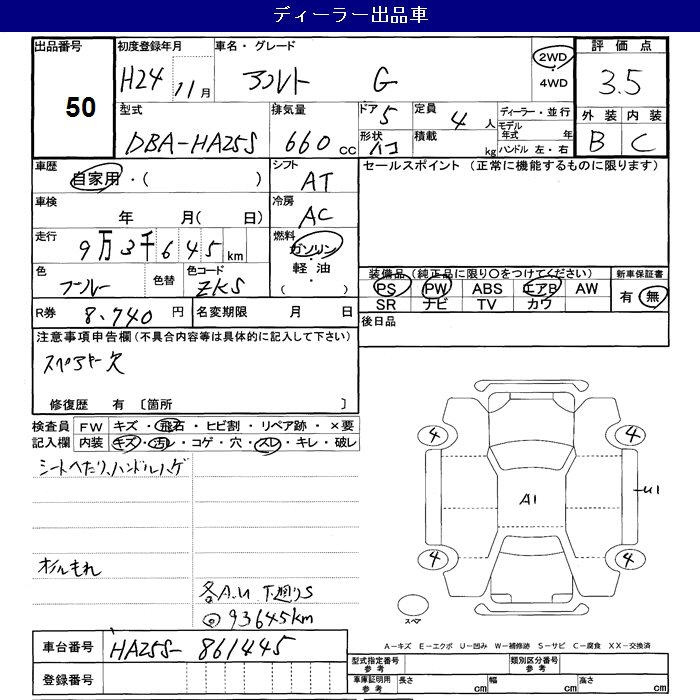 ディーラー出品車
出品番号 初度登録年月 車名・グレード 評価点
50 H24 11月 アルト G 2WD・4WD 3.5
型式 排気量 ドア 定員 ディーラー・並行 外装 内装
DBA-HA25S 660cc 5 4人 モデル年式 年 B C
形状 ハコ 積載 kg ハンドル 左・右
車歴 自家用・( ) シフト AT セールスポイント (正常に機能するものに限ります)
車検 年 月( 日) 冷房 AC
走行 9万3千645km 燃料 ガソリン・軽油・( )
色 ブルー 色替 色コード ZKS
装備品(純正品に限り○をつけてください) 新車保証書
PS PW ABS エアB AW 有・無
SR ナビ TV カワ
R券 8,740円 名変期限 月 日 後日品
注意事項申告欄(不具合内容等は具体的に記入して下さい)
スペアキー欠
修復歴 有 〔箇所 〕
検査員 FW キズ・飛石・ヒビ割・リペア跡・×要
記入欄 内装 キズ・汚レ・コゲ・穴・スレ・キレ・破レ
シートへたり、ハンドルハゲ
オイルもれ
各A.U 下廻りS
◎93645km
4 4
A1 U1
4 4
スペア
A－キズ E－エクボ U－凹み W－補修跡 S－サビ C－腐食 XX－交換済
車台番号 HA25S-861445
登録番号
型式指定番号 参考 類別区分番号 参考
車庫証明用 参考 長さ cm 幅 cm 高さ cm